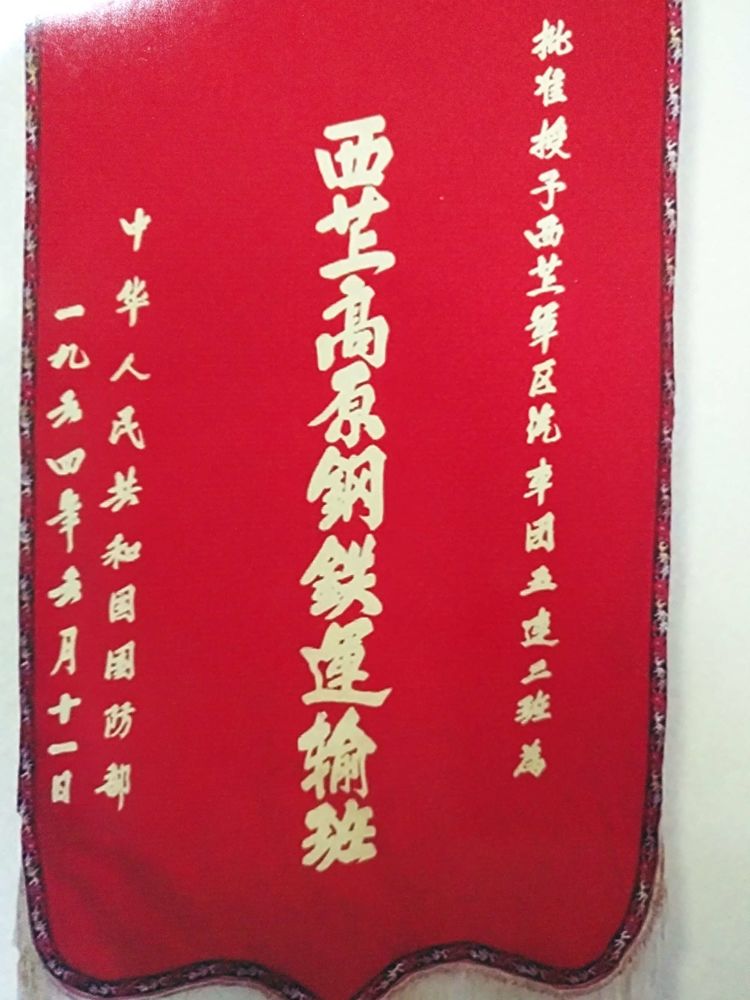 批准授予西藏軍区汽车团五连二班為
西藏高原鋼鉄運輸班
中华人民共和国国防部
一九六四年六月十一日